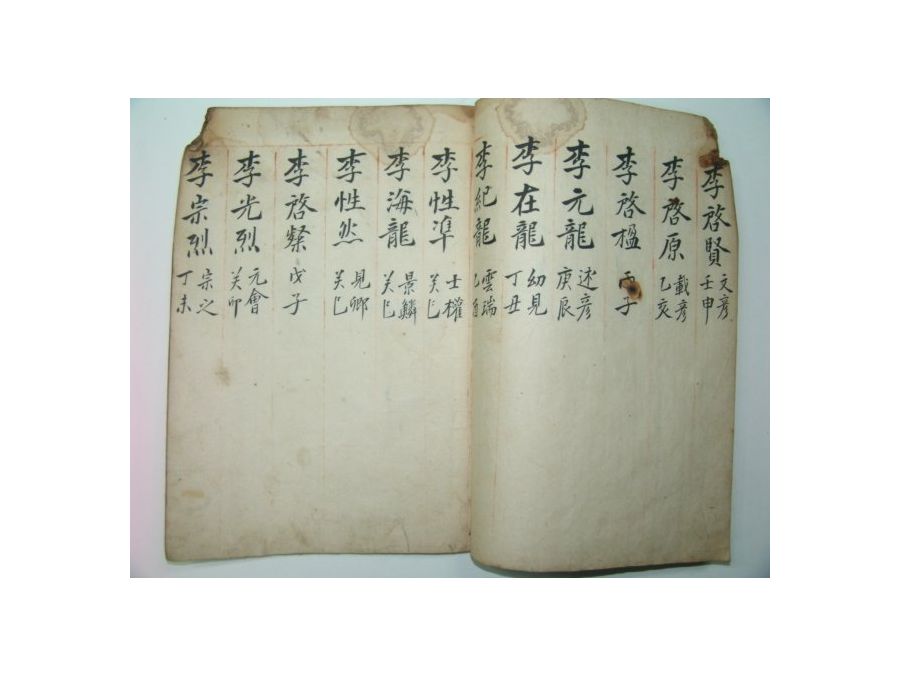 李啓賢 文彦 壬申
李啓原 載彦 乙亥
李啓楹 丙子
李元龍 述彦 庚辰
李在龍 幼見 丁丑
李紀龍 雲瑞 乙酉
李性準 士權 癸巳
李海龍 景鱗 癸巳
李性然 見卿 癸巳
李啓粲 戊子
李光烈 元會 癸卯
李宗烈 宗之 丁未